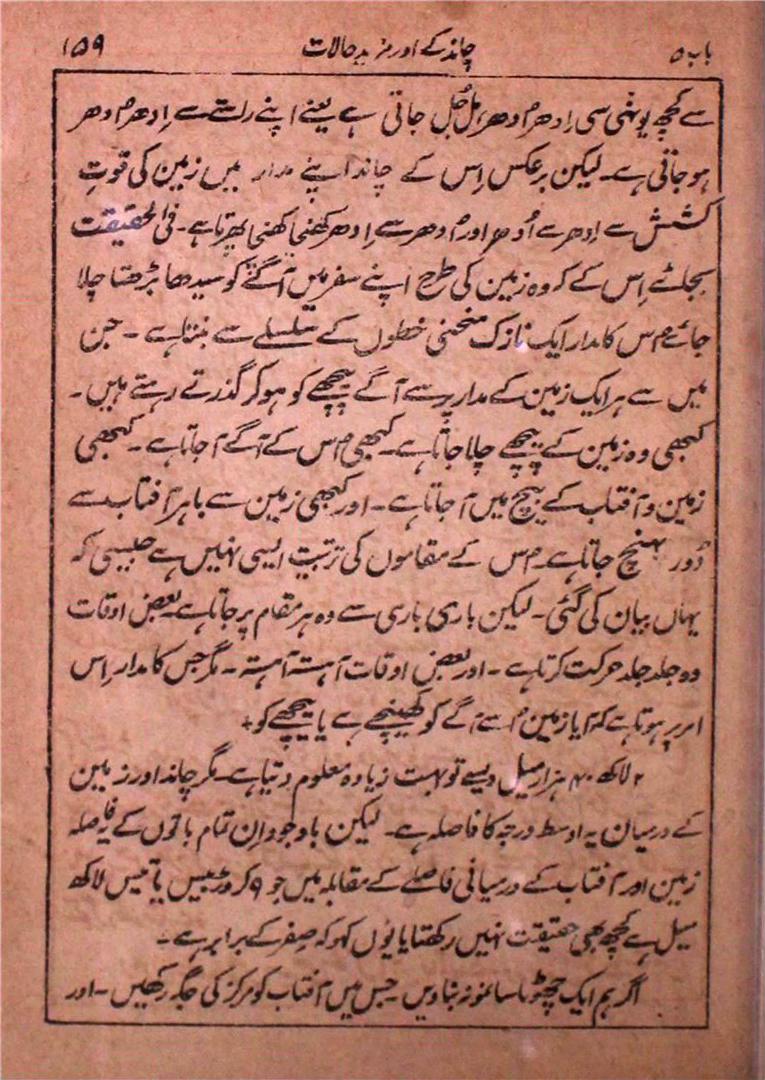 باب ۵ چاند کے اور مزید حالات ۱۵۹
سے کچھ یونہی سی اِدھر اُدھر ہل جُل جاتی ہے یعنے اپنے راستے سے اِدھر اُدھر
ہوجاتی ہے۔ لیکن برعکس اِس کے چاند اپنے مدار میں زمین کی قوتِ
کشش سے اِدھر سے اُدھر اور اُدھر سے اِدھر کھنچا کھنچا پھرتا ہے۔ فی الحقیقت
بجائے اِس کے کہ وہ زمین کی طرح اپنے سفر میں آگے کو سیدھا بڑھتا چلا
جائے اُس کا مدار ایک نازک منحنی خطوں کے سلسلے سے بنتا ہے۔ جن
میں سے ہر ایک زمین کے مدار پر سے آگے پیچھے کو ہوکر گذرتے رہتے ہیں۔
کبھی وہ زمین کے پیچھے چلا جاتا ہے۔ کبھی اُس کے آگے آجاتا ہے۔ کبھی
زمین و آفتاب کے بیچ میں آجاتا ہے۔ اور کبھی زمین سے باہر آفتاب سے
دُور پہنچ جاتا ہے۔ اُس کے مقاموں کی ترتیب ایسی نہیں ہے جیسی کہ
یہاں بیان کی گئی۔ لیکن باری باری سے وہ ہر مقام پر جاتا ہے۔ بعض اوقات
وہ جلد جلد حرکت کرتا ہے۔ اور بعض اوقات آہستہ آہستہ۔ مگر جس کا مدار اِس
امر پر ہوتا ہے کہ آیا زمین اُسے آگے کو کھینچے ہے یا پیچھے کو +
۲ لاکھ ۴۰ ہزار میل ویسے تو بہت زیادہ معلوم دیتا ہے۔ مگر چاند اور زمین
کے درمیان یہ اوسط درجہ کا فاصلہ ہے۔ لیکن باوجود اِن تمام باتوں کے یہ فاصلہ
زمین اور آفتاب کے درمیانی فاصلے کے مقابلہ میں جو ۹ کروڑ بیس یا تیس لاکھ
میل ہے کچھ بھی حقیقت نہیں رکھتا یا یوں کہو کہ صِفر کے برابر ہے۔
اگر ہم ایک چھوٹا سا نمونہ بناویں۔ جس میں آفتاب کو مرکز کی جگہ رکھیں۔ اور